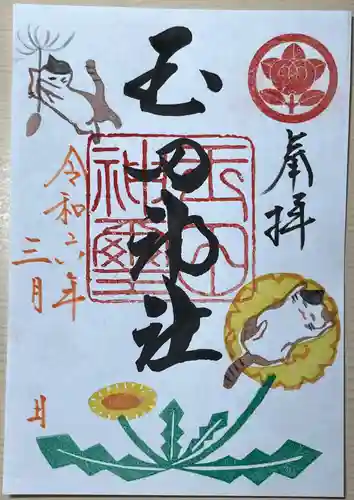 奉拝
玉田神社
玉田
神璽
令和六年
三月
日